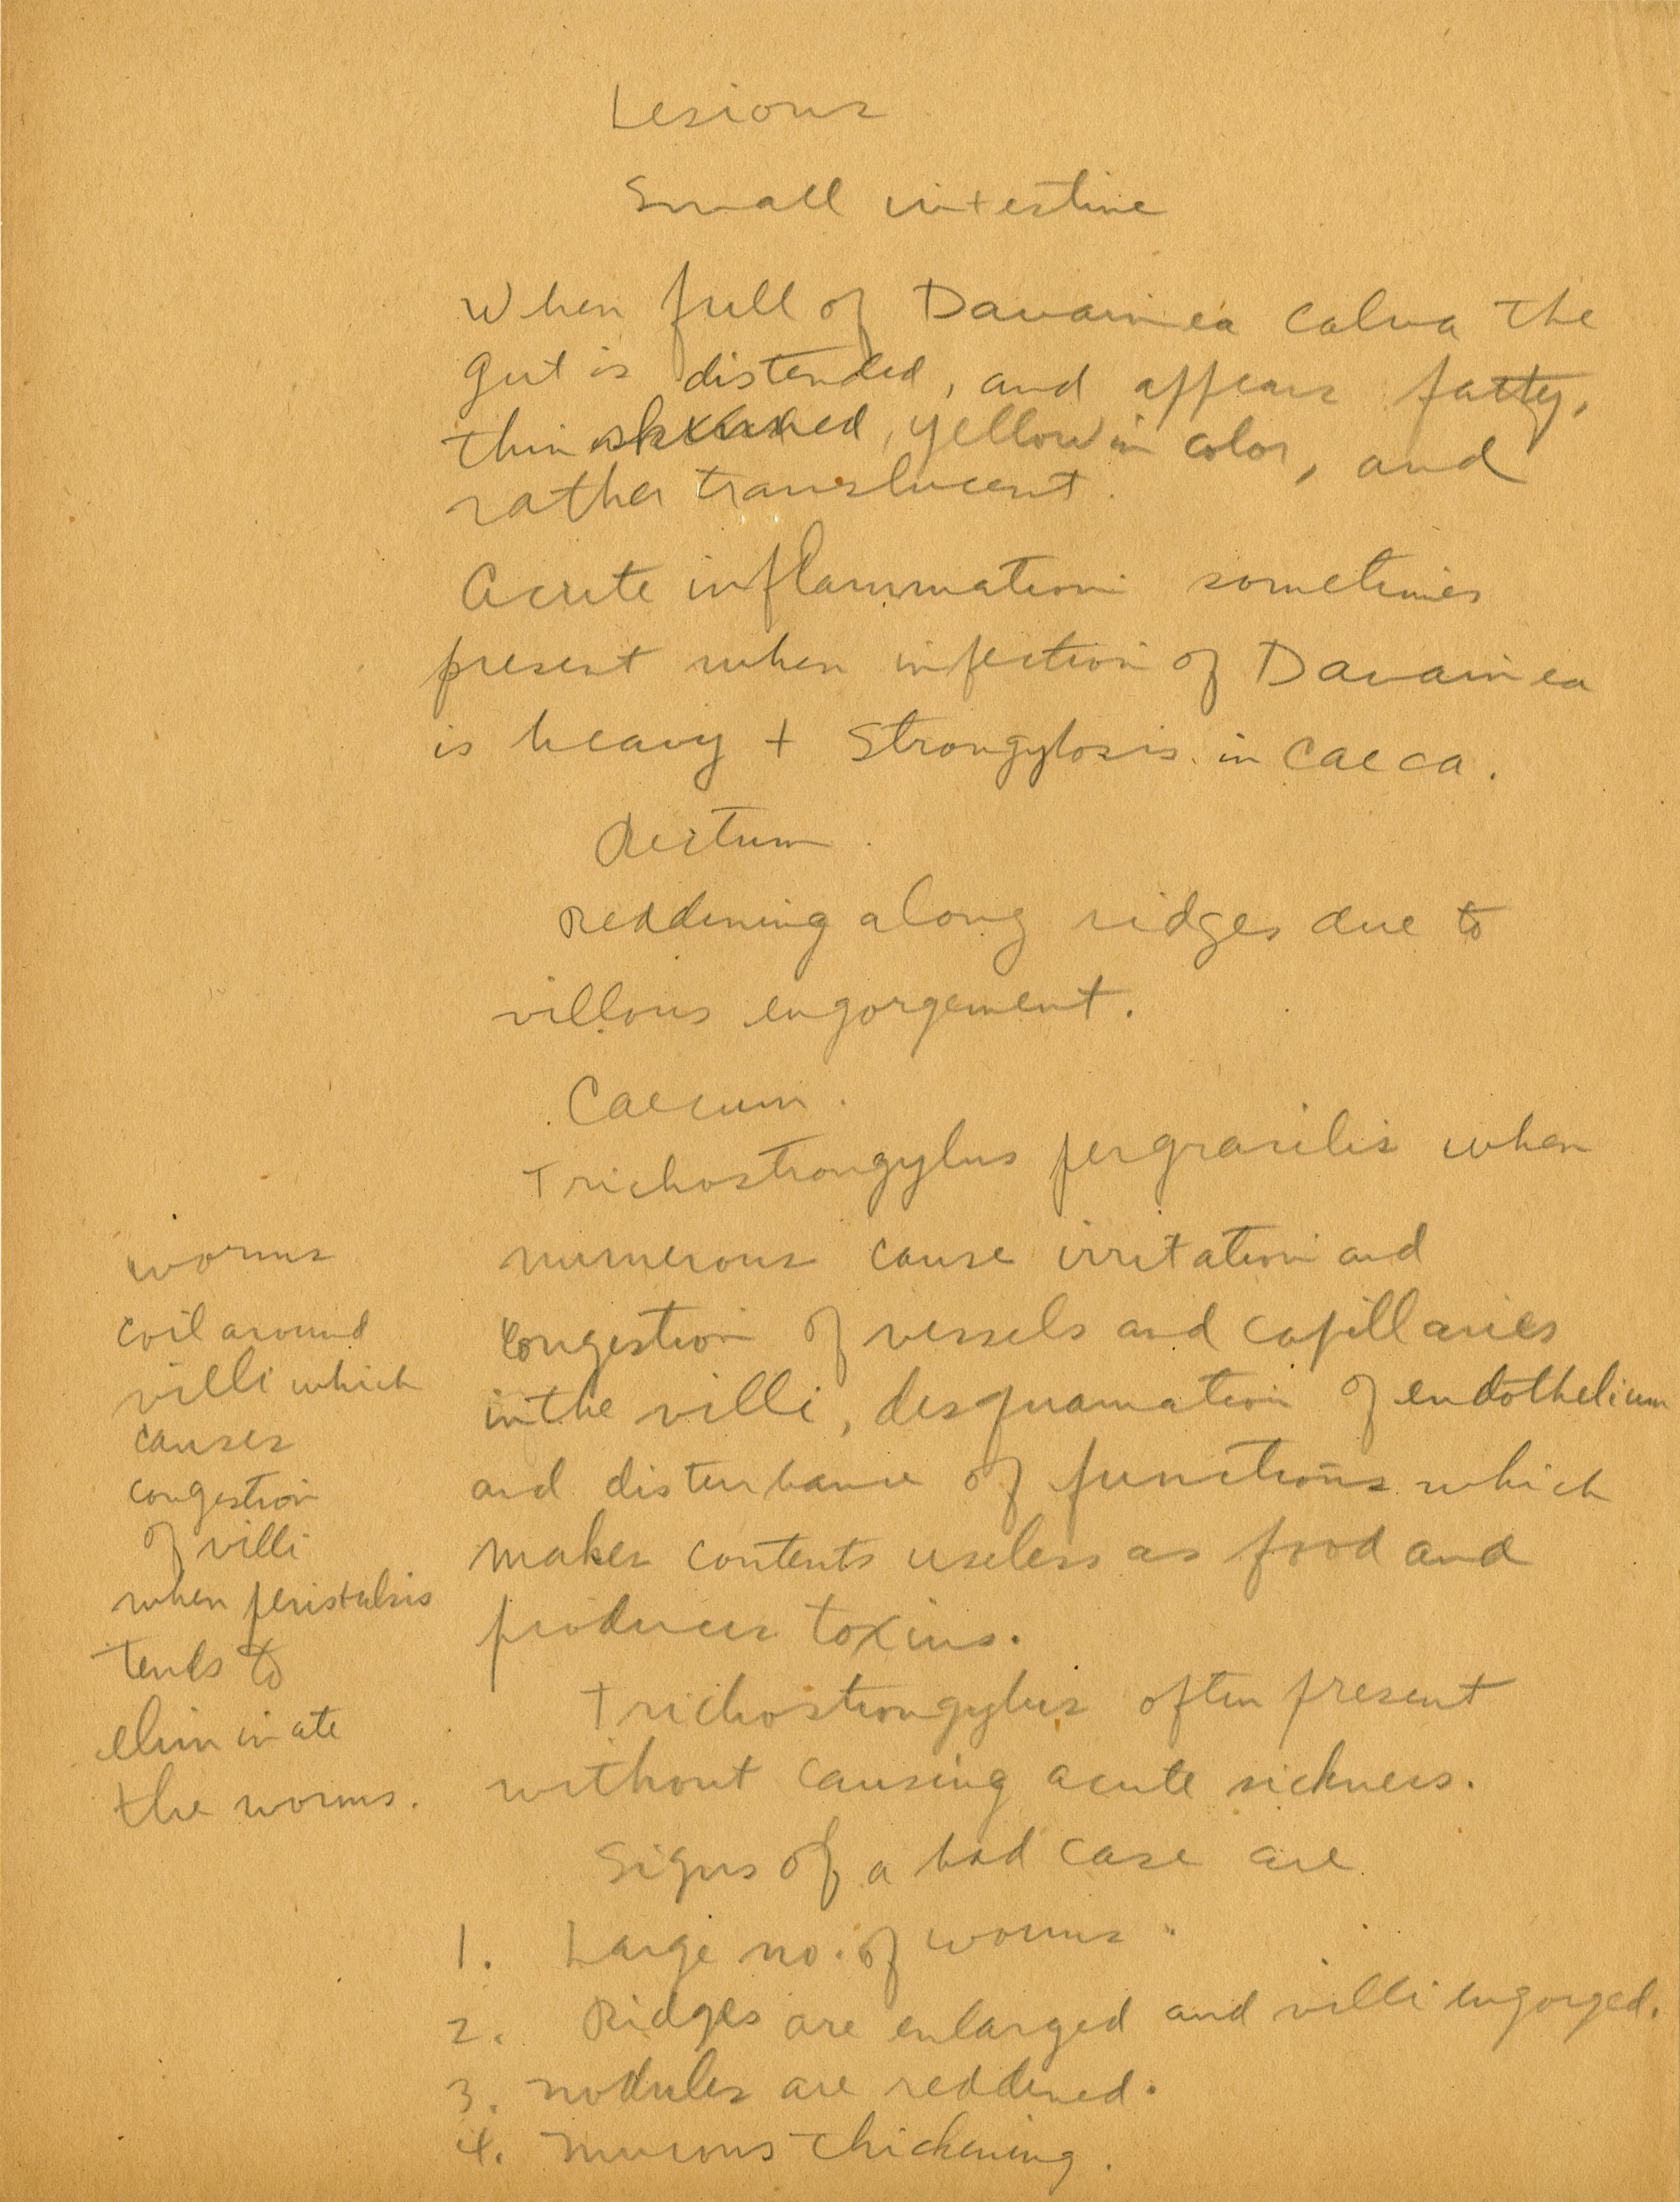 Lesions
Small intestine
When full of Davainea calva the
gut is distended, and appears fatty,
thin skinned, yellow in color, and
rather translucent.
Acute inflammation sometimes
present when infection of Davainea
is heavy + Strongylosis in caeca.
Rectum.
Reddening along ridges due to
villous engorgement.
Caecum.
Trichostrongylus pergracilis when
numerous cause irritation and
congestion of vessels and capillaries
in the villi, desquamation of endothelium
and disturbance of functions which
makes contents useless as food and
produces toxins.
Trichostrongylus often present
without causing acute sickness.
Signs of a bad case are
1. Large no. of worms.
2. Ridges are enlarged and villi engorged.
3. nodules are reddened.
4. mucous thickening.
worms
coil around
villi which
causes
congestion
of villi
when peristalsis
tends to
eliminate
the worms.